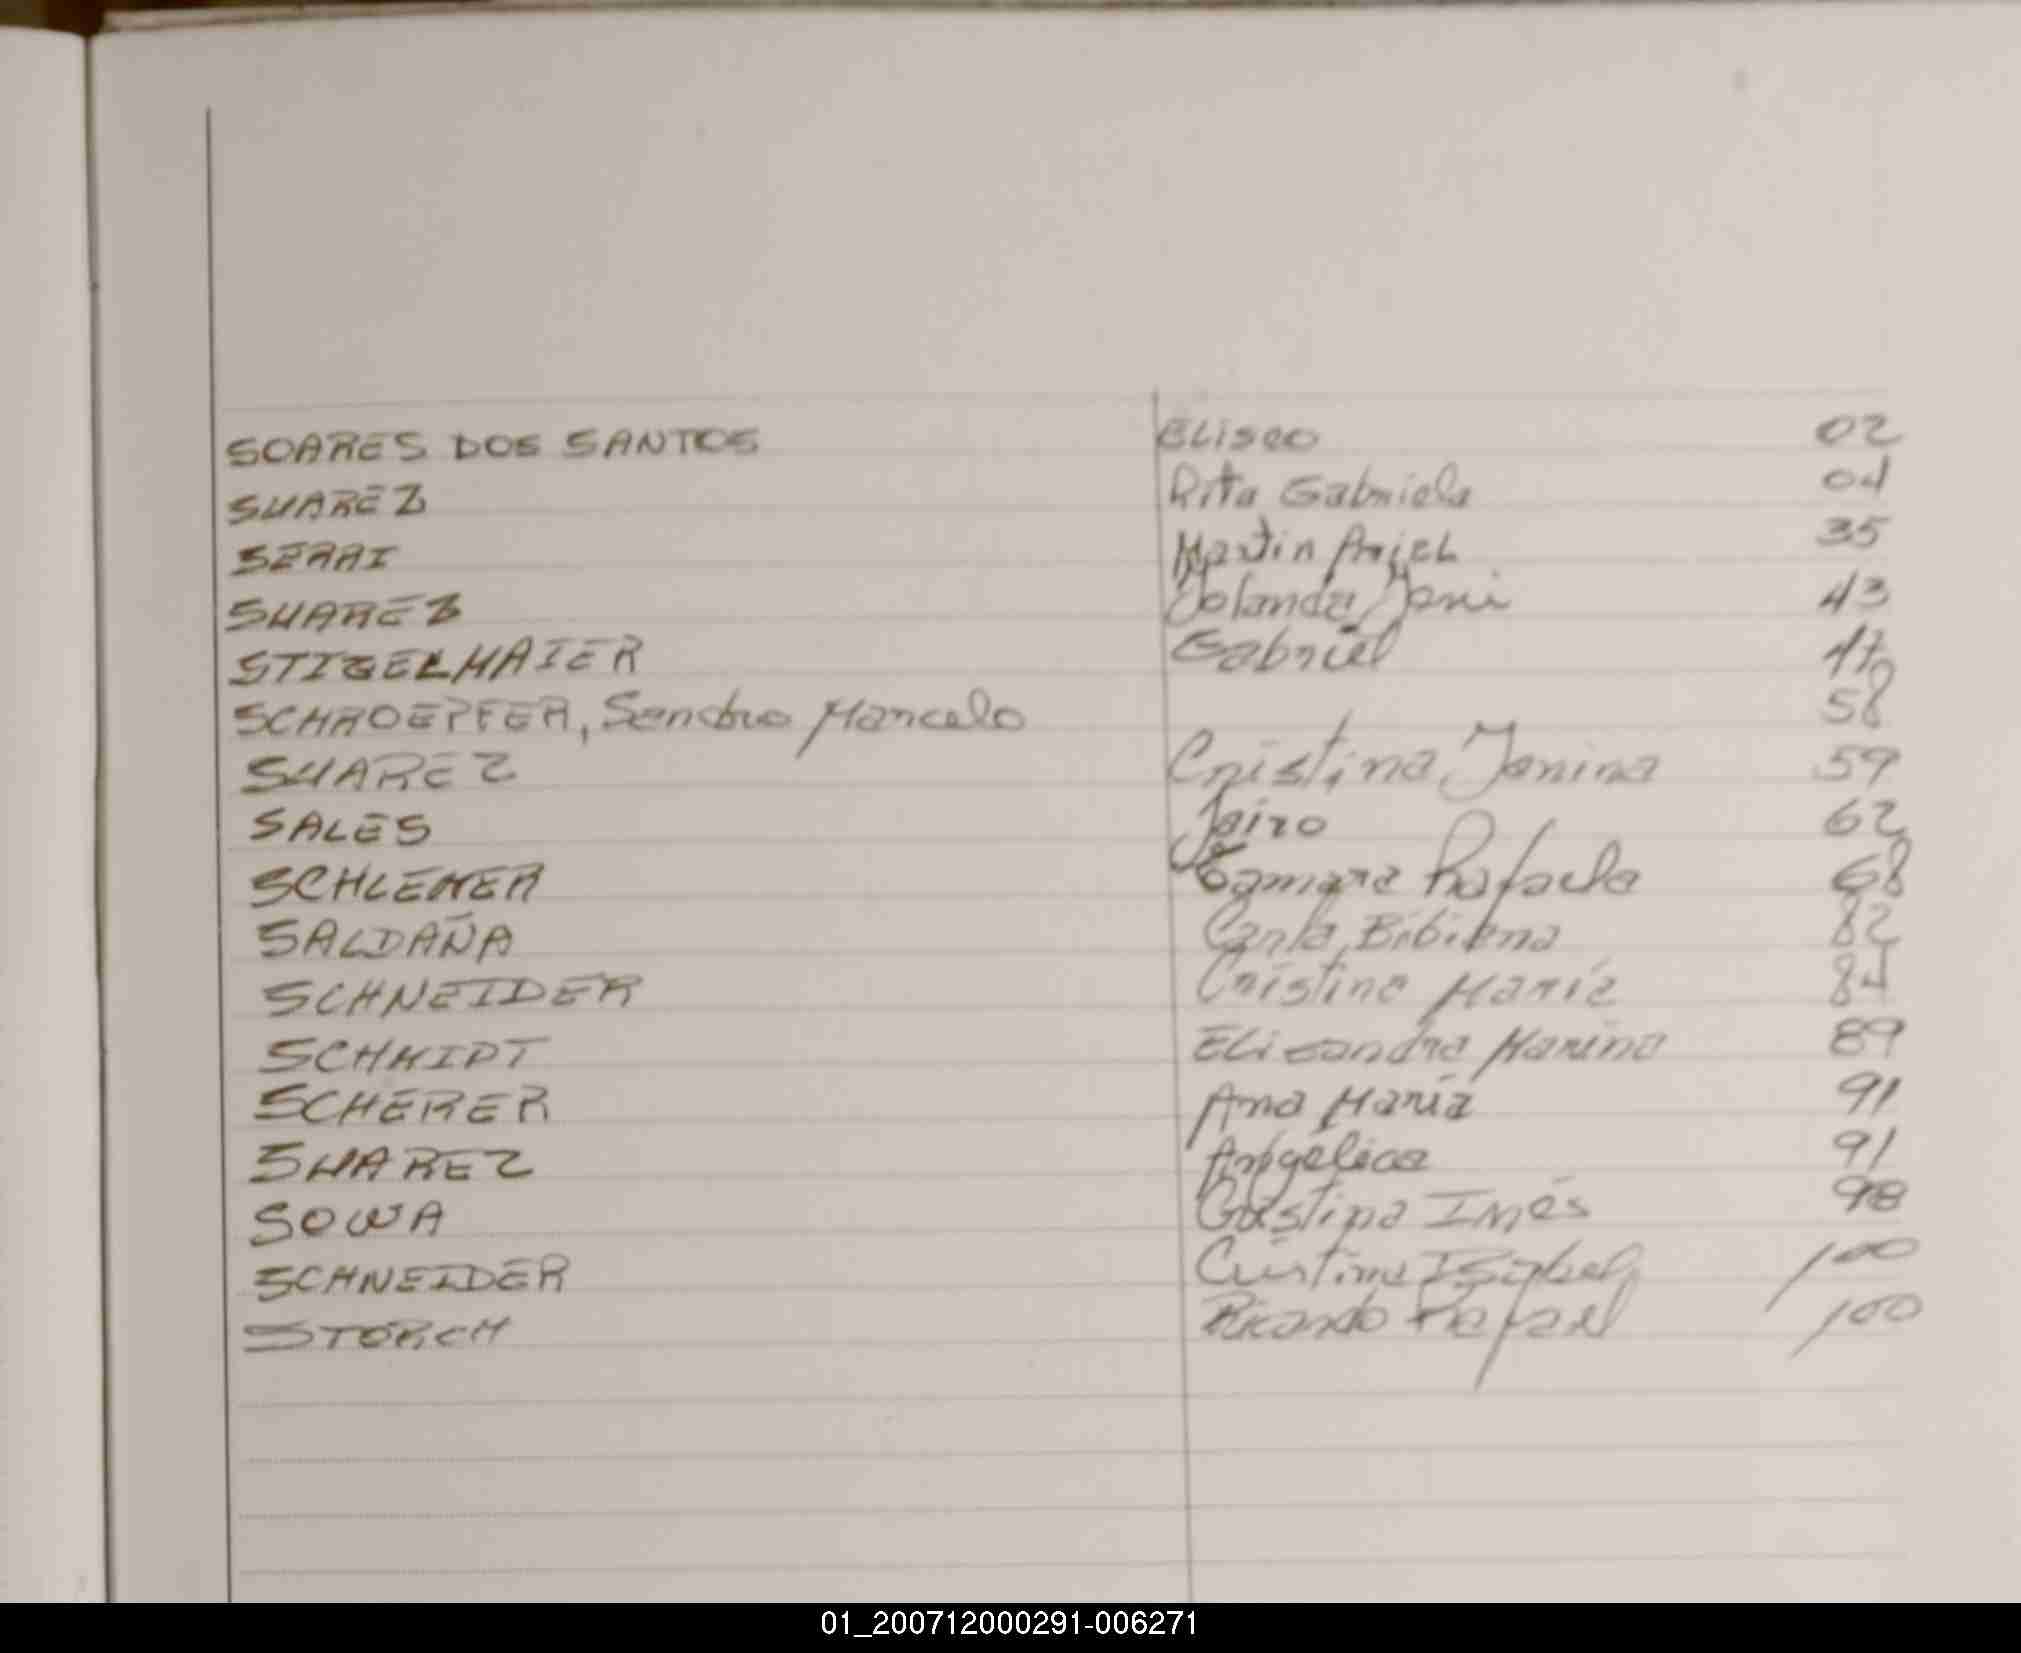 SOARES DOS SANTOS Eliseo 02
SUAREZ Rita Gabriela 04
SERAI Martin 35
SUAREZ Yolanda 43
STIGELMAIER Gabriel 47
SCHROEPFER, Sandro Marcelo 58
SUAREZ Cristina Janina 59
SALES Jairo 62
SCHLEMER Tamara Rafaela 68
SALDAÑA Carla Bibiana 82
SCHNEIDER Cristina María 84
SCHMIDT Elisandra Marina 89
SCHERER Ana María 91
SUAREZ Angélica 91
SOWA Cristina Inés 98
SCHNEIDER Cristina Isabel 100
STORCH Ricardo Rafael 100
01_200712000291-006271